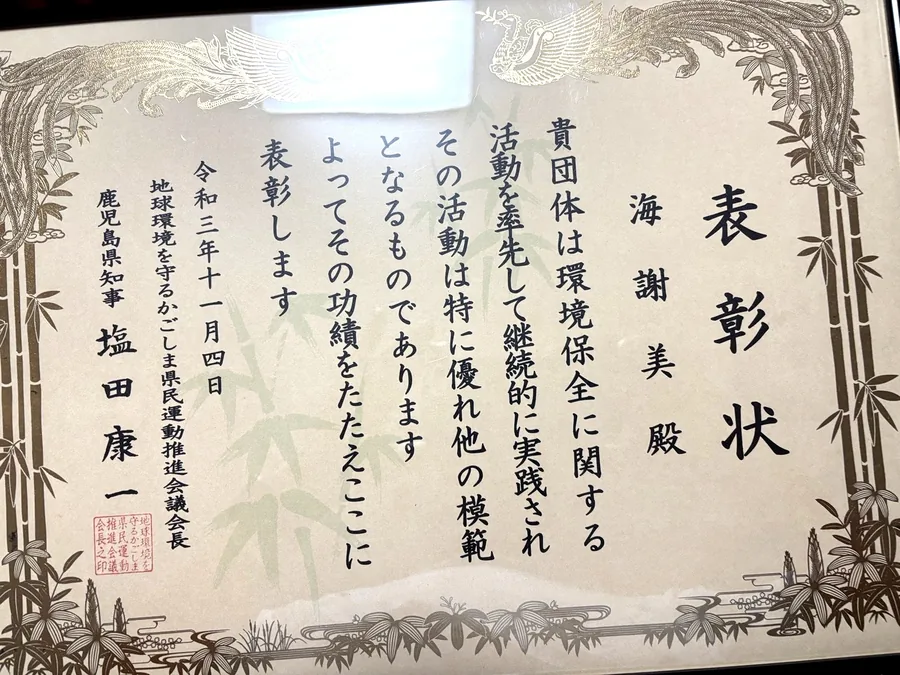 表彰状
海謝美殿
貴団体は環境保全に関する
活動を率先して継続的に実践され
その活動は特に優れ他の模範
となるものであります
よってその功績をたたえここに
表彰します
令和三年十一月四日
地球環境を守るかごしま県民運動推進会議会長
鹿児島県知事 塩田康一
地球環境を
守るかごしま
県民運動
推進会議
会長之印